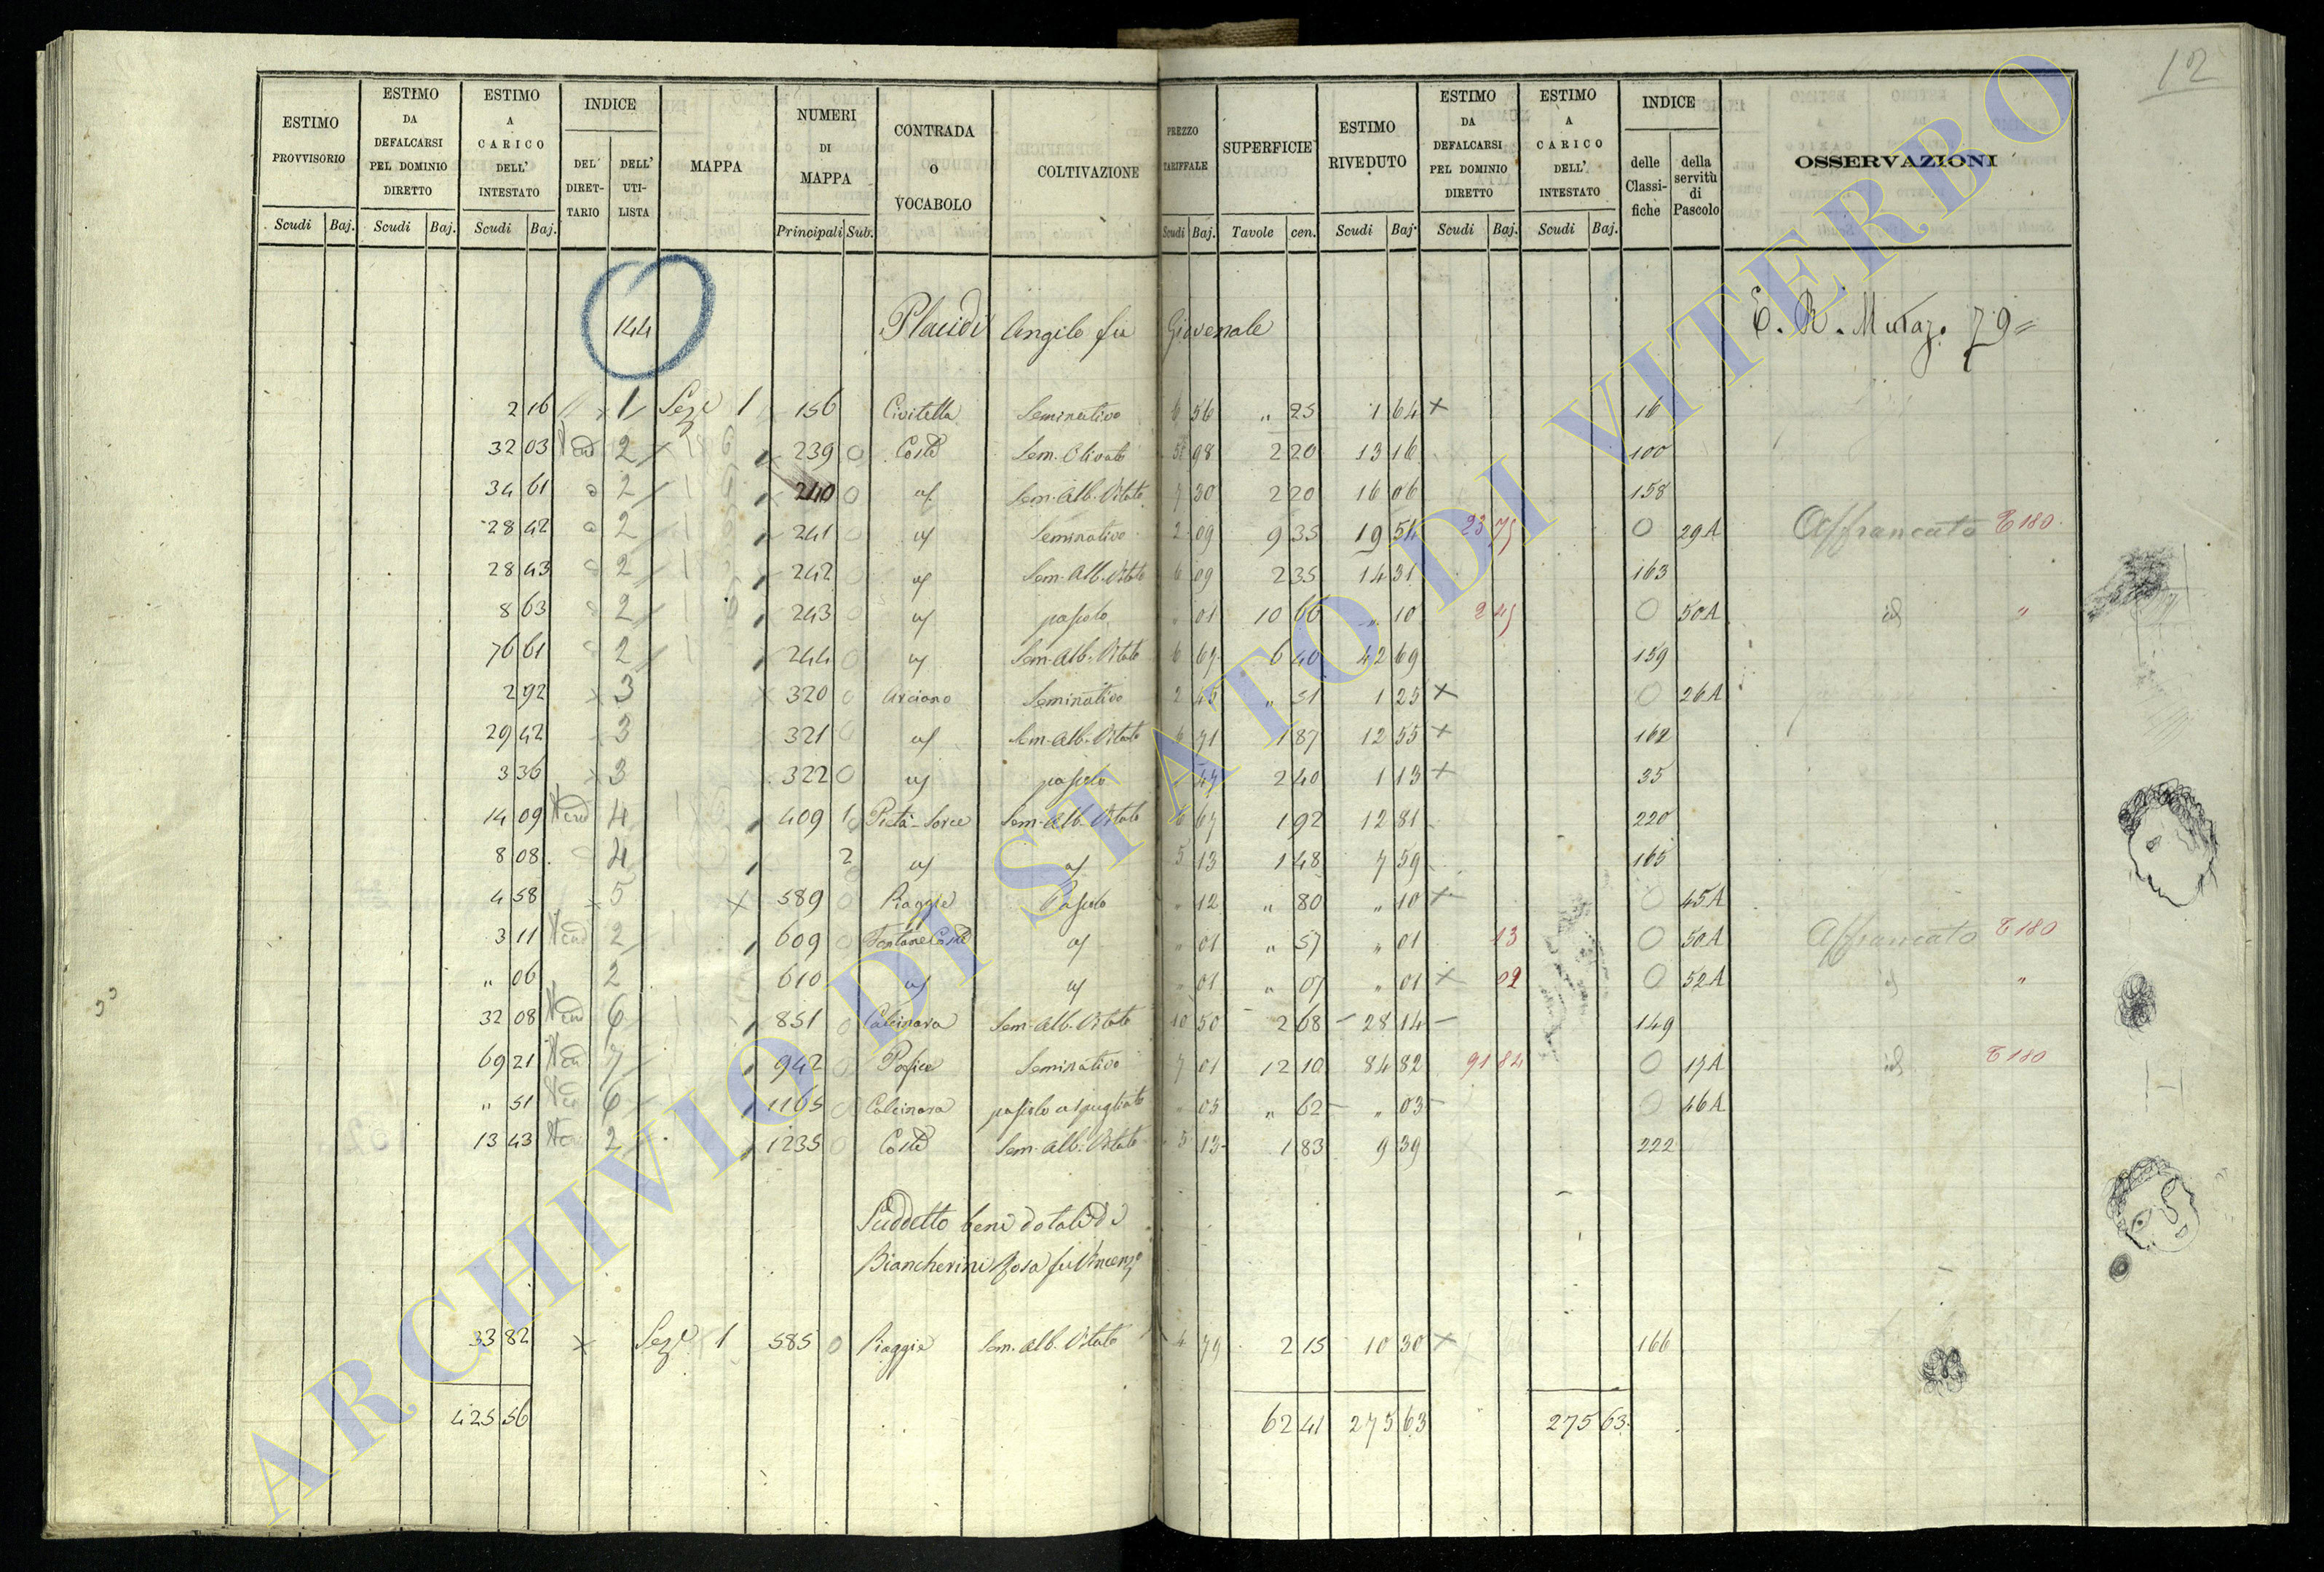 12
ESTIMO PROVVISORIO
ESTIMO DA DEFALCARSI PEL DOMINIO DIRETTO
ESTIMO A CARICO DELL' INTESTATO
INDICE
DEL DIRETTARIO
DELL' UTILISTA
MAPPA
NUMERI DI MAPPA
CONTRADA O VOCABOLO
COLTIVAZIONE
PREZZO TARIFFALE
SUPERFICIE
ESTIMO RIVEDUTO
ESTIMO DA DEFALCARSI PEL DOMINIO DIRETTO
ESTIMO A CARICO DELL' INTESTATO
INDICE
delle Classifiche
della servitù di Pascolo
OSSERVAZIONI
Scudi Baj. Scudi Baj. Scudi Baj. Principali Sub. Scudi Baj. Tavole cen. Scudi Baj. Scudi Baj. Scudi Baj.
144 Placidi Angelo fu Giovenale E. R. Mutaz. 79
2 16 1 Sez.e 1 156 Civitella Seminativo 6 56 " 25 1 64 16
32 03 2 239 0 Coste Sem. Olivato 5 98 2 20 13 16 100
34 61 2 240 0 id Sem. Alb. Vitato 7 30 2 20 16 06 158
28 42 2 241 0 id Seminativo 2 09 9 35 19 54 23 75 0 29A Affrancato E 180
28 43 2 242 0 id Sem. Alb. Vitato 6 09 2 35 14 31 163
8 63 2 243 0 id pascolo " 01 10 66 " 10 2 45 0 50A id "
76 61 2 244 0 id Sem. Alb. Vitato 6 67 6 40 42 69 159
2 92 3 320 0 Arciano Seminativo 2 45 " 51 1 25 0 26A
29 42 3 321 0 id Sem. Alb. Vitato 6 71 1 87 12 55 162
3 36 3 322 0 id pascolo " 47 2 40 1 13 35
14 09 4 409 1 Sem. Alb. Vitato 6 67 1 92 12 81 220
8 08 4 2 id id 5 13 1 48 7 59 165
4 58 5 589 0 Piaggie Pascolo " 12 " 80 " 10 0 45A
3 11 2 609 0 Fontane Coste id " 01 " 57 " 01 13 0 50A Affrancato E 180
" 06 2 610 id id " 01 " 07 " 01 02 0 52A id "
32 08 6 851 0 Calcinara Sem. Alb. Vitato 10 50 2 68 28 14 149
69 21 7 942 0 Seminativo 7 01 12 10 84 82 91 84 0 17A id E 180
" 51 6 1165 0 Calcinara pascolo cespugliato " 05 " 62 " 03 0 46A
13 43 2 1235 0 Coste Sem. Alb. Vitato 5 13 1 83 9 39 222
Suddetto beni dotali di
Biancherini Rosa fu Vincenzo
33 82 Sez.e 1 585 0 Piaggie Sem. Alb. Vitato 4 79 2 15 10 30 166
425 56 62 41 275 63 275 63
ARCHIVIO DI STATO DI VITERBO